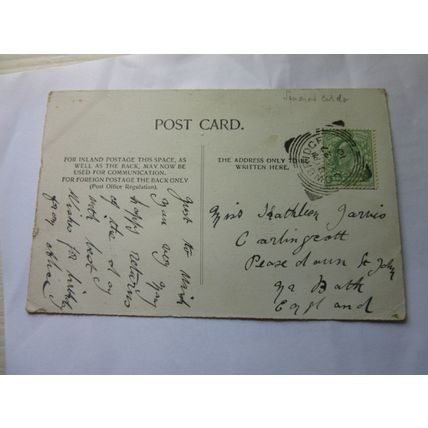 POST CARD.
FOR INLAND POSTAGE THIS SPACE, AS
WELL AS THE BACK, MAY NOW BE
USED FOR COMMUNICATION.
FOR FOREIGN POSTAGE THE BACK ONLY
(Post Office Regulation).
THE ADDRESS ONLY TO BE
WRITTEN HERE.
Just to wish
you very many
happy returns
of the day
with best
wishes for birthday
from
Miss Kathleen Jarvis
Carlingcott
Peasedown St John
Nr Bath
England